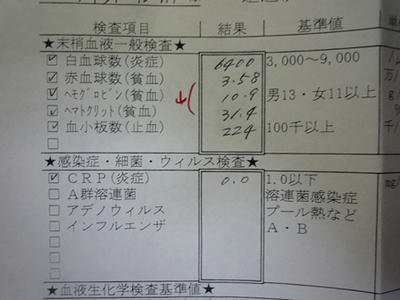 検査項目 結果 基準値
★末梢血液一般検査★
☑ 白血球数(炎症) 6400 3,000～9,000
☑ 赤血球数(貧血) 3.58
☑ ヘモグロビン(貧血) 10.9 男13・女11以上
☑ ヘマトクリット(貧血) 31.4
☑ 血小板数(止血) 224 100千以上
★感染症・細菌・ウィルス検査★
☑ CRP(炎症) 0.0 1.0以下
□ A群溶連菌 溶連菌感染症
□ アデノウィルス プール熱など
□ インフルエンザ A・B
★血液生化学検査基準値★